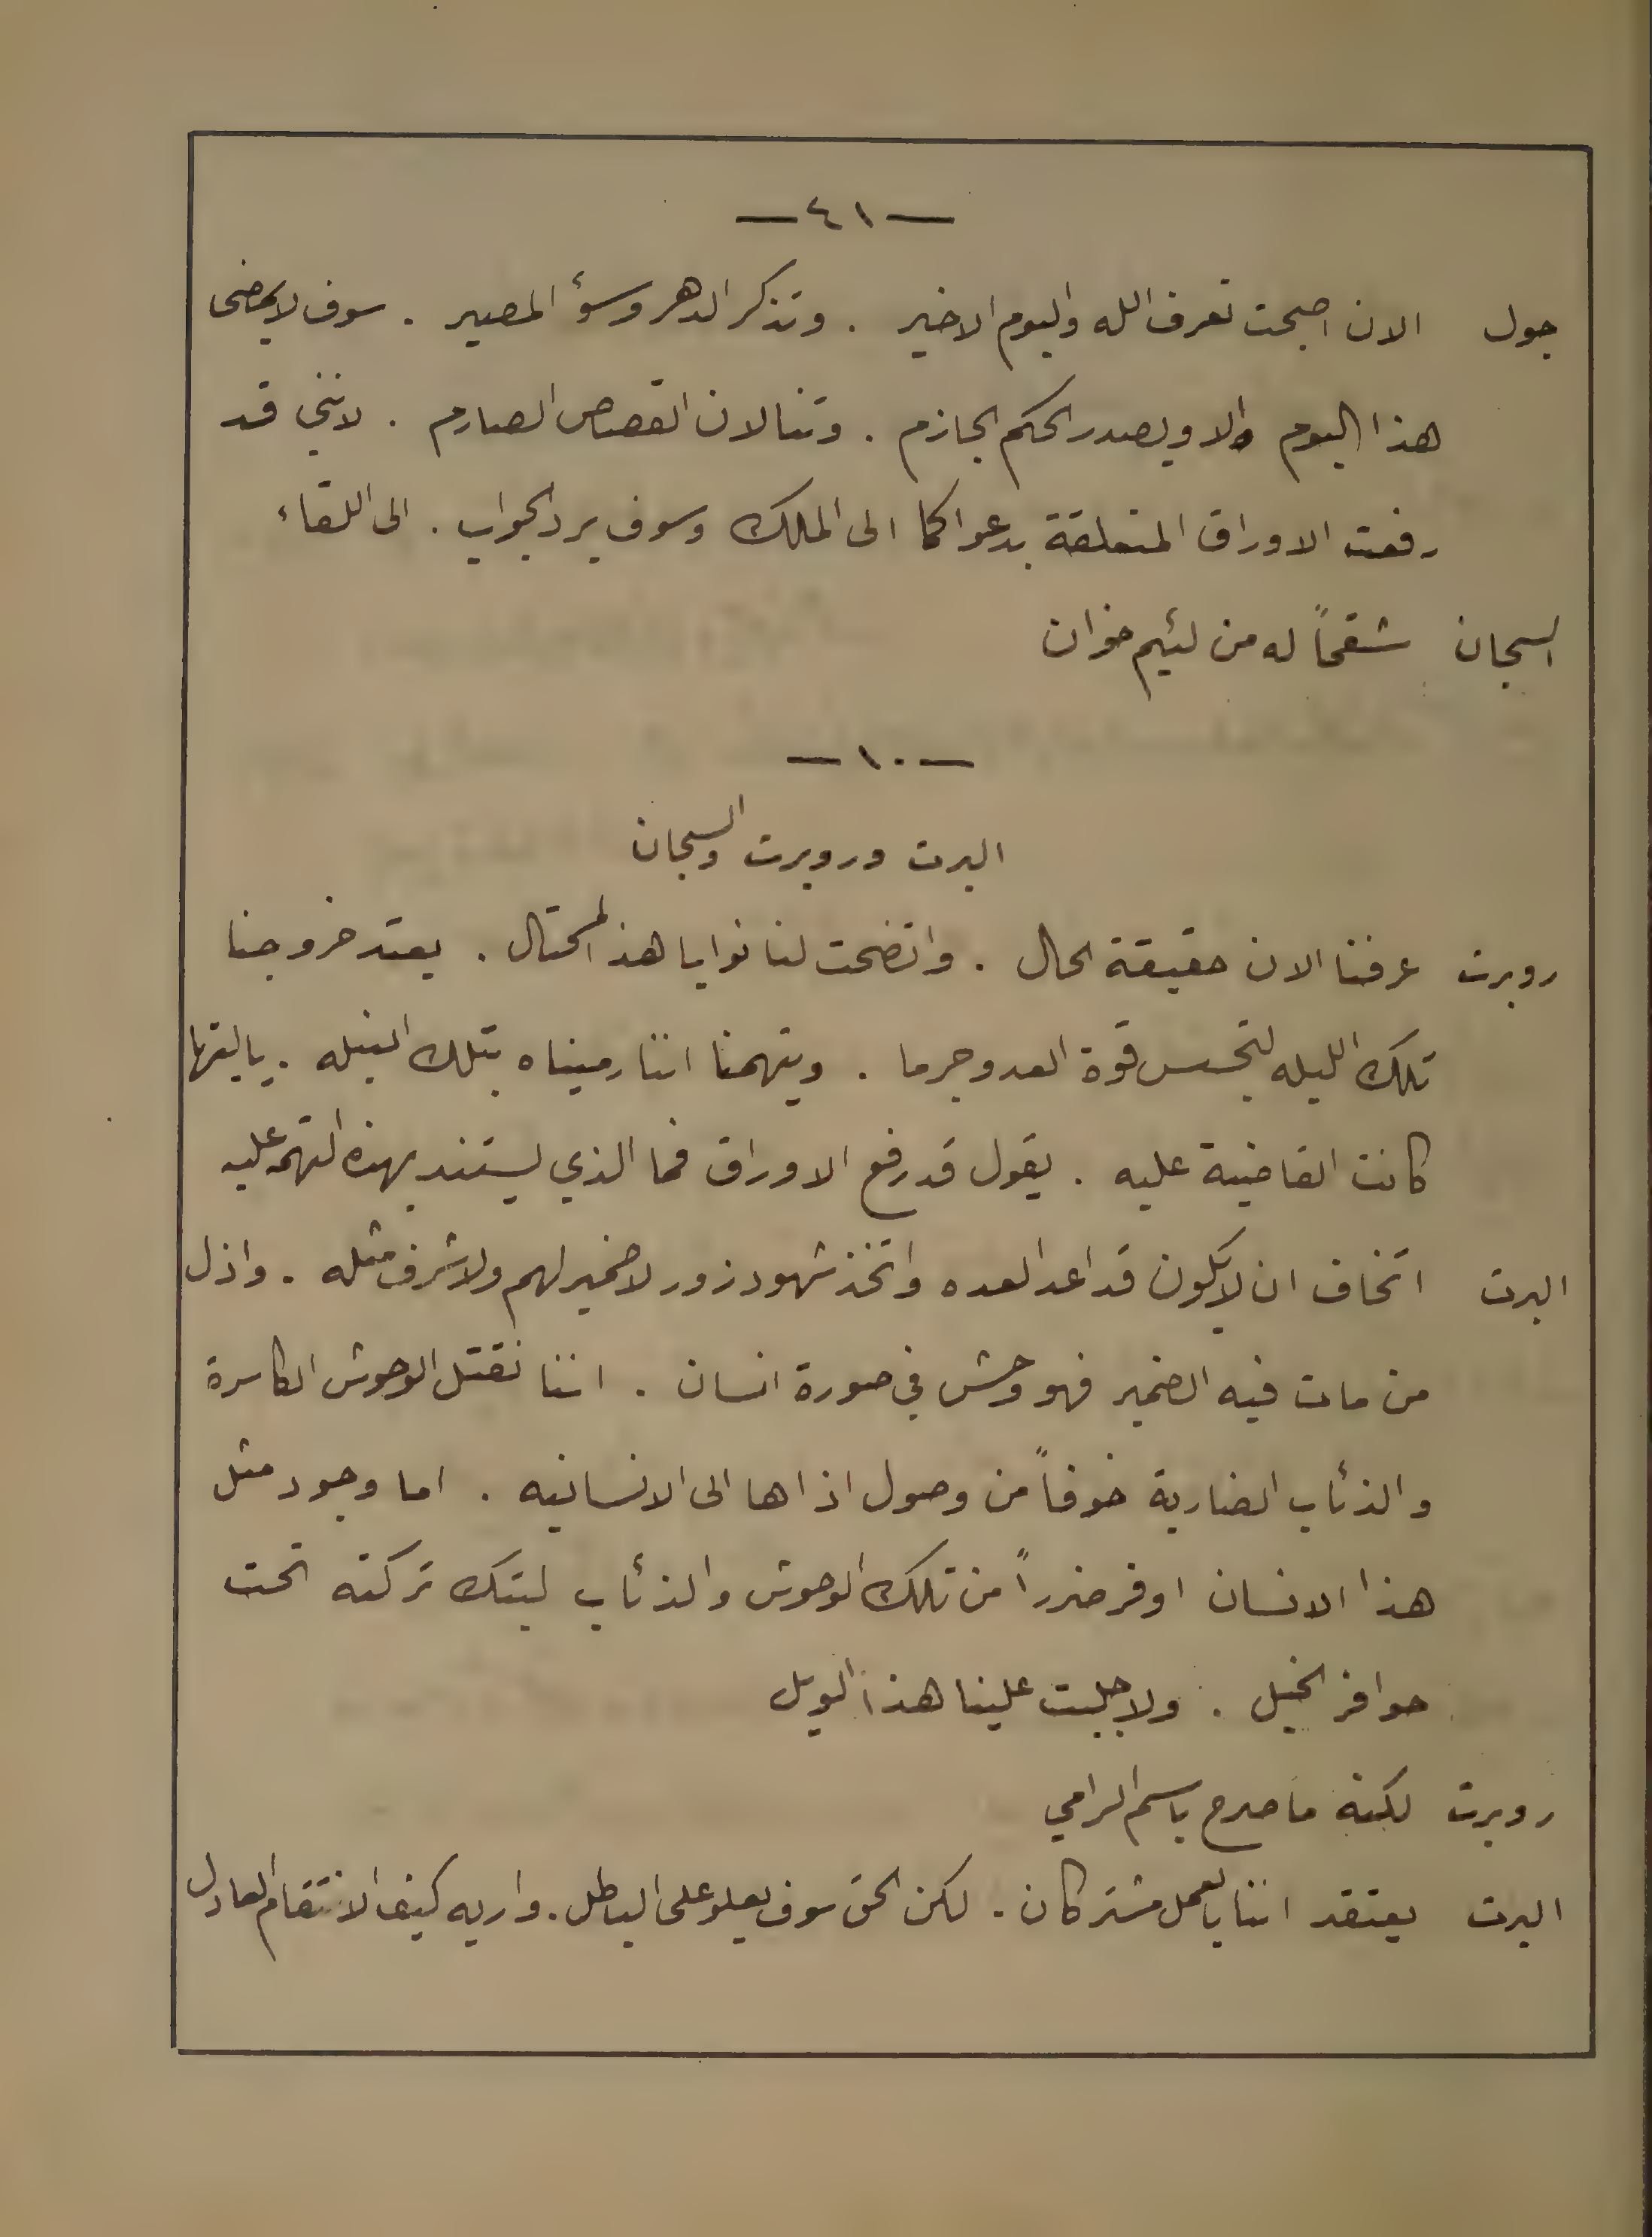 — ٤١ —
جول الان اصبحت تعرف الله واليوم الاخير . وتذكر الدهر وسؤ المصير . سوف لا يمضى
هذا اليوم والا ويصدر الحكم الجازم . وتنالان القصاص الصارم . لانني قد
رفعت الاوراق المتعلقة بدعواكما الى الملك وسوف يرد الجواب . الى اللقاء
السجان شقحاً له من لئيم خوان
— ١٠ —
البرت وروبرت والسجان
روبرت عرفنا الان حقيقة الحال . واتضحت لنا نوايا هذا المحتال . يعتد خروجنا
تلك الليله لتجسس قوة العدو جرما . ويتهمنا اننا رميناه بتلك النبله . ياليتها
كانت القاضية عليه . يقول قد رفع الاوراق فما الذي يستند بهذه التهمه عليه
البرت اتخاف ان لا يكون قد اعد العده واتخذ شهود زور لا ضمير لهم ولا شرف مثله . واذل
من مات فيه الضمير فهو وحش في صورة انسان . اننا نقتل الوحوش الكاسرة
والذئاب الضارية خوفاً من وصول اذاها الى الانسانيه . اما وجود مثل
هذا الانسان اوفر ضرراً من تلك الوحوش والذئاب ليتك تركته تحت
حوافر الخيل . ولا جلبت علينا هذا الويل
روبرت لكنه ما صرح باسم الرامي
البرت يعتقد اننا بالعمل مشتركان . لكن الحق سوف يعلو على الباطل . واريه كيف الانتقام العادل